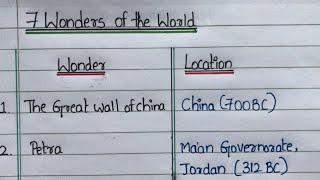 7 Wonders of the World
Wonder Location
1. The Great Wall of China China (700BC)
2. Petra Ma'an Governorate,
Jordan (312 BC)